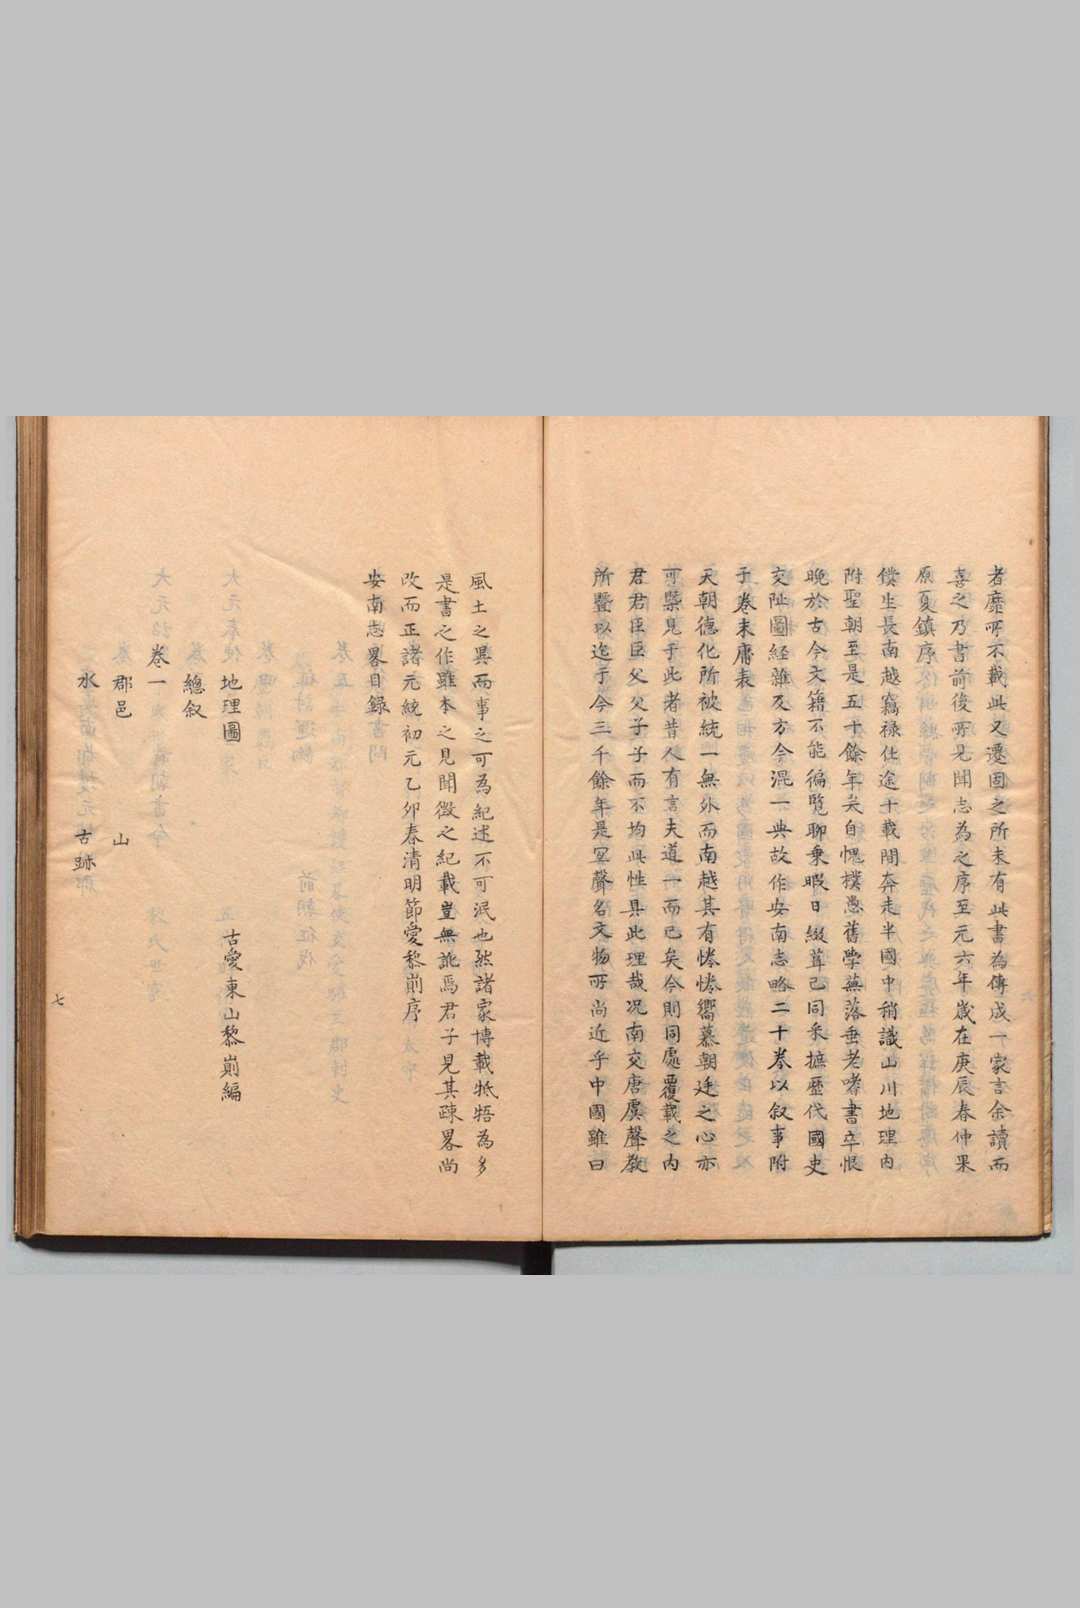 者靡所不載此又遷固之所未有此書為傳成一家言余讀而
喜之乃書前後所見聞志為之序至元六年歲在庚辰春仲果
原夏鎮序
僕生長南越竊禄仕途十載間奔走半國中稍識山川地理內
附聖朝至是五十餘年矣自愧樸愚舊學蕪落垂老嗜書卒恨
晚於古今文籍不能徧覧聊乗暇日綴葺已同采摭歷代國史
交阯圖経雜及方今混一典故作安南志略二十巻以叙事附
于巻末庸表
天朝德化所被統一無外而南越其有惓惓嚮慕朝廷之心亦
可槩見于此者昔人有言夫道一而已矣今則同處覆載之内
君君臣臣父父子子而不均此性具此理哉况南交唐虞聲教
所曁以迄于今三千餘年是宜聲名文物所尚近乎中國雖曰
風土之異而事之可為紀述不可泯也然諸家博載牴牾為多
是書之作雖本之見聞徴之紀載豈無訛焉君子見其疎畧尚
改而正諸元統初元乙卯春清明節愛黎崱序
安南志畧目録
巻一
古愛東山黎崱編
地理圖
總叙
郡邑
山
水
古跡
七